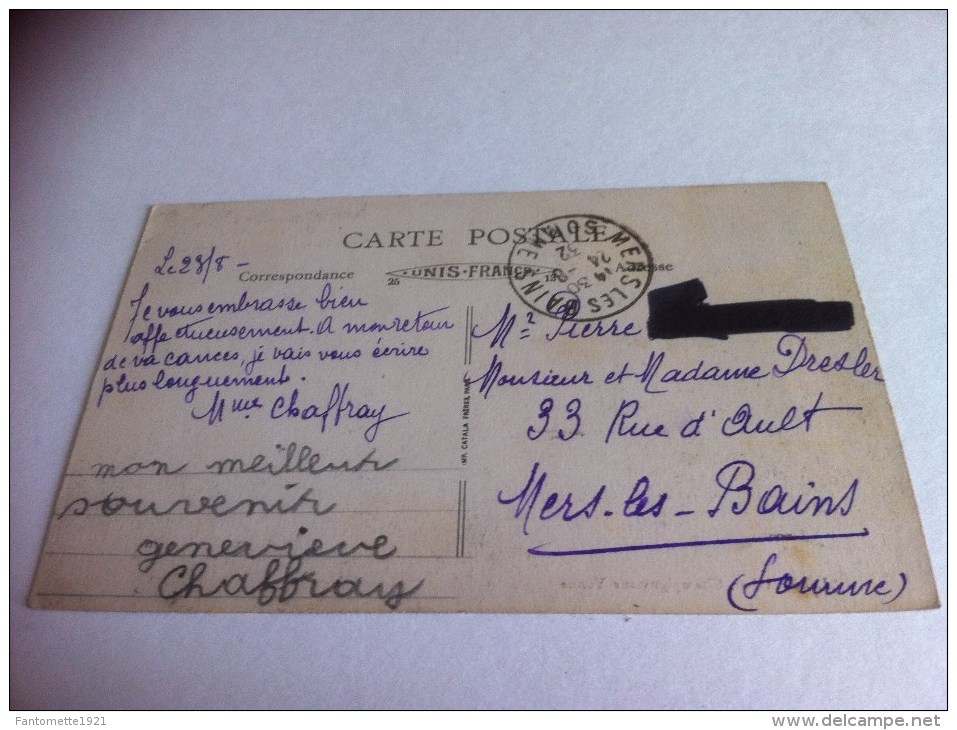 CARTE POSTALE
Le 23/8 -
Correspondance
25
UNIS-FRANCE
Adresse
MERS LES BAINS SOMME
14 30
24 - 8
32
Je vous embrasse bien
affectueusement. A mon retour
de vacances, je vais vous écrire
plus longuement.
Mme Chaffray
mon meilleur
souvenir
genevieve
Chaffray
IMP. CATALA FRÈRES, PARIS
Mr Pierre
Monsieur et Madame Dresler
33 Rue d'Ault
Mers-les-Bains
(Somme)
Fantomette1921
delcampe.net